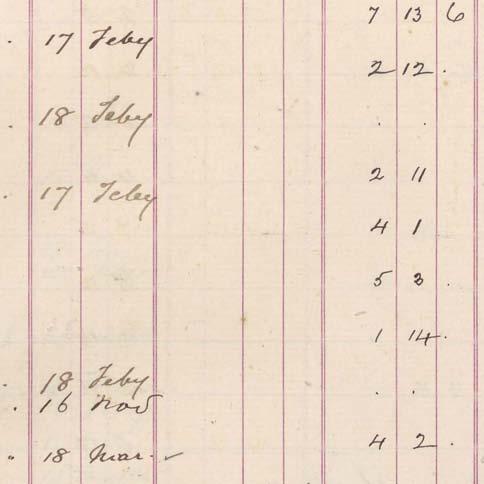 7 13 6
. 17 Feby
2 12 .
. 18 Feby . .
2 11
. 17 Feby
4 1
5 3 .
1 14 .
. 18 Feby . .
. 16 Nov
4 2 .
" 18 Mar. ✓